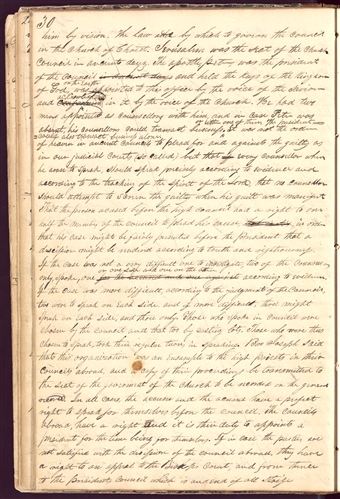 30
him by vision. The law by which to govern the council
in the Church of Christ. Jerusalem was the seat of the Church
Council in ancient days. The apostle Peter was the president
of the Council and held the keys of the kingdom
of God, was appointed to this office by the voice of the Savior
and in it by the voice of the Church. He had two
men appointed as counsellors with him, and in case Peter was
absent, his counsellors could transact business,
It was not the order
of heaven in ancient councils to plead for and against the guilty as
in our judicial Courts (so called) but that every counsellor when
he arose to speak, should speak precisely according to evidence and
according to the teaching of the Spirit of the Lord, that no counsellor
should attempt to screen the guilty when his guilt was manifest
That the person accused before the high council had a right to one
half the members of the council to plead his cause in order
that his case might be fairly presented before the President that a
decision might be rendered according to truth and righteousness.
If the case was not a very difficult one to investigate, two of the counsellors
only spoke, one on one side and one on the other according to evidence.
If the case was more difficult, according to the judgement of the council,
two were to speak on each side, and if more difficult, three might
speak on each side, and three only. Those who spoke in council were
chosen by the council and that too by casting lots, those who were thus
chosen to speak, took their regular turn in speaking. Bro Joseph said
that this organization was an ensample to the high priests in their
Councils abroad, and a copy of their proceedings be transmitted to
the seat of the government of the Church to be recorded on the general
record. In all cases, the accuser and the accused have a perfect
right to speak for themselves before the council. the Councils
abroad, have a right and it is their duty to appoint a
president for the time being for themselves. If in case the parties are
not satisfied with the decision of the council abroad, they have
a right to an appeal to the Bishops Court, and from thence
to the President's Council which is an end of all strife